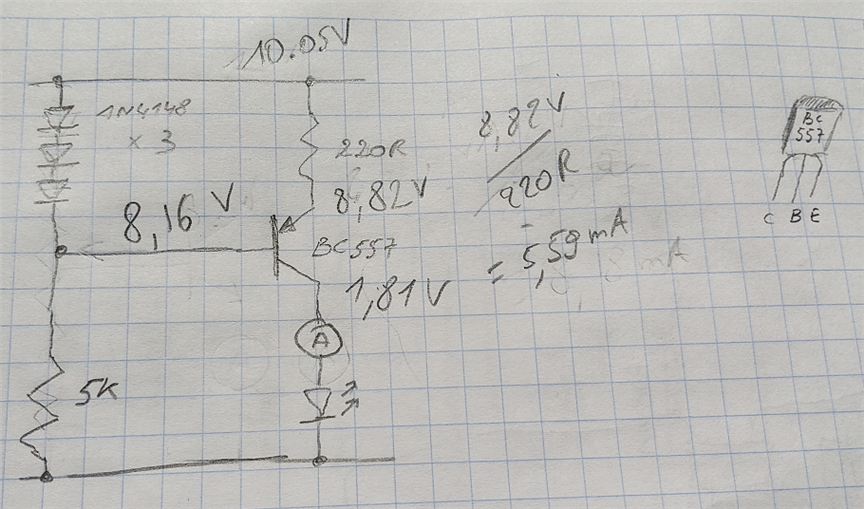 10.05V
1N4148
x 3
220R
8,82V
8,16 V
BC557
1,81V
A
5K
8,82V
220R
= 5,59mA
BC
557
C B E